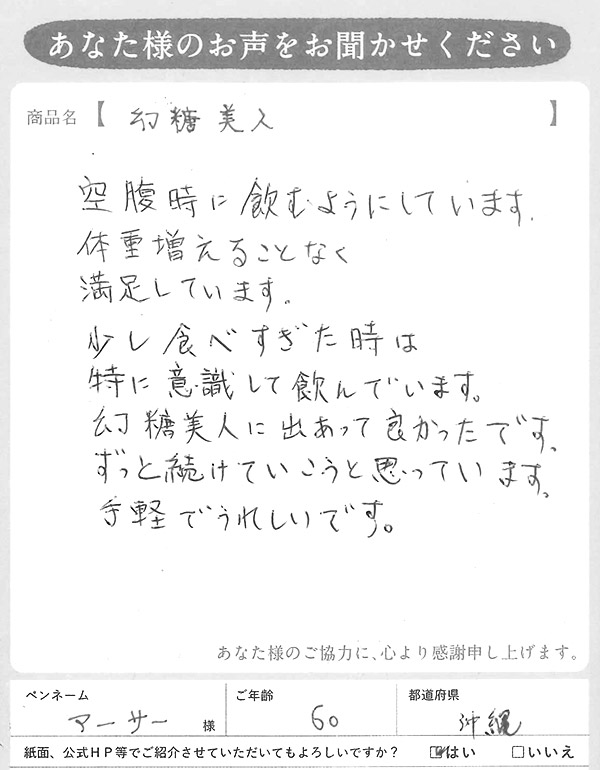 あなた様のお声をお聞かせください
商品名【 幻糖美人 】
空腹時に飲むようにしています。
体重増えることなく
満足しています。
少し食べすぎた時は
特に意識して飲んでいます。
幻糖美人に出あって良かったです。
ずっと続けていこうと思っています。
手軽でうれしいです。
あなた様のご協力に、心より感謝申し上げます。
ペンネーム ご年齢 都道府県
マーサー 様 60 沖縄
紙面、公式HP等でご紹介させていただいてもよろしいですか? ☑はい □いいえ